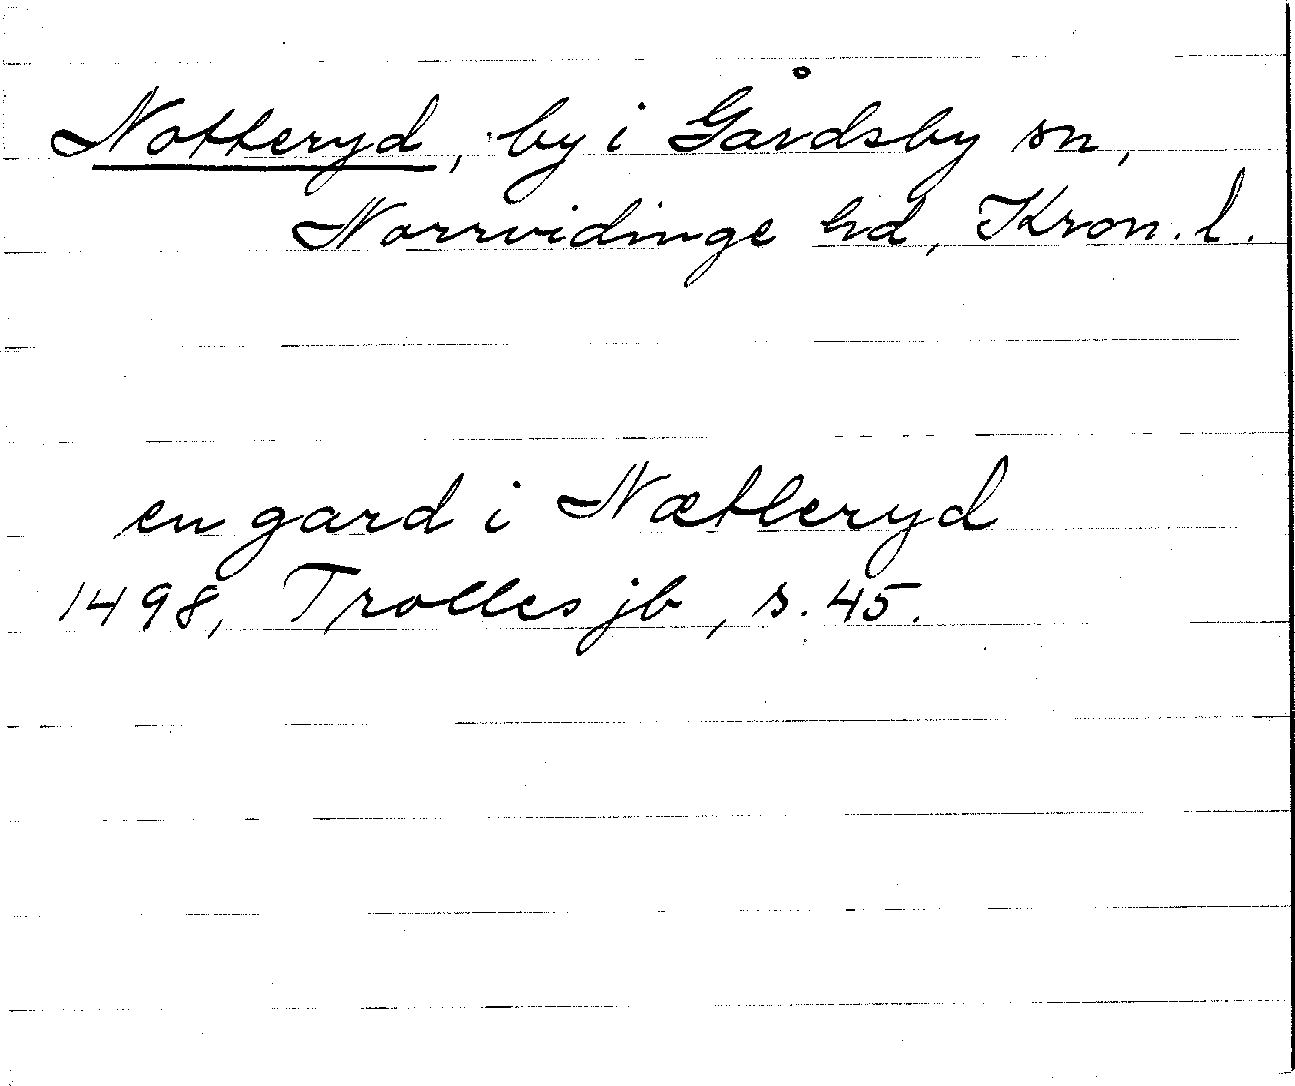 Notteryd, by i Gårdsby sn,
Norrvidinge hd, Kron. l.
en gard i Nætleryd
1498, Trolles jb, s. 45.